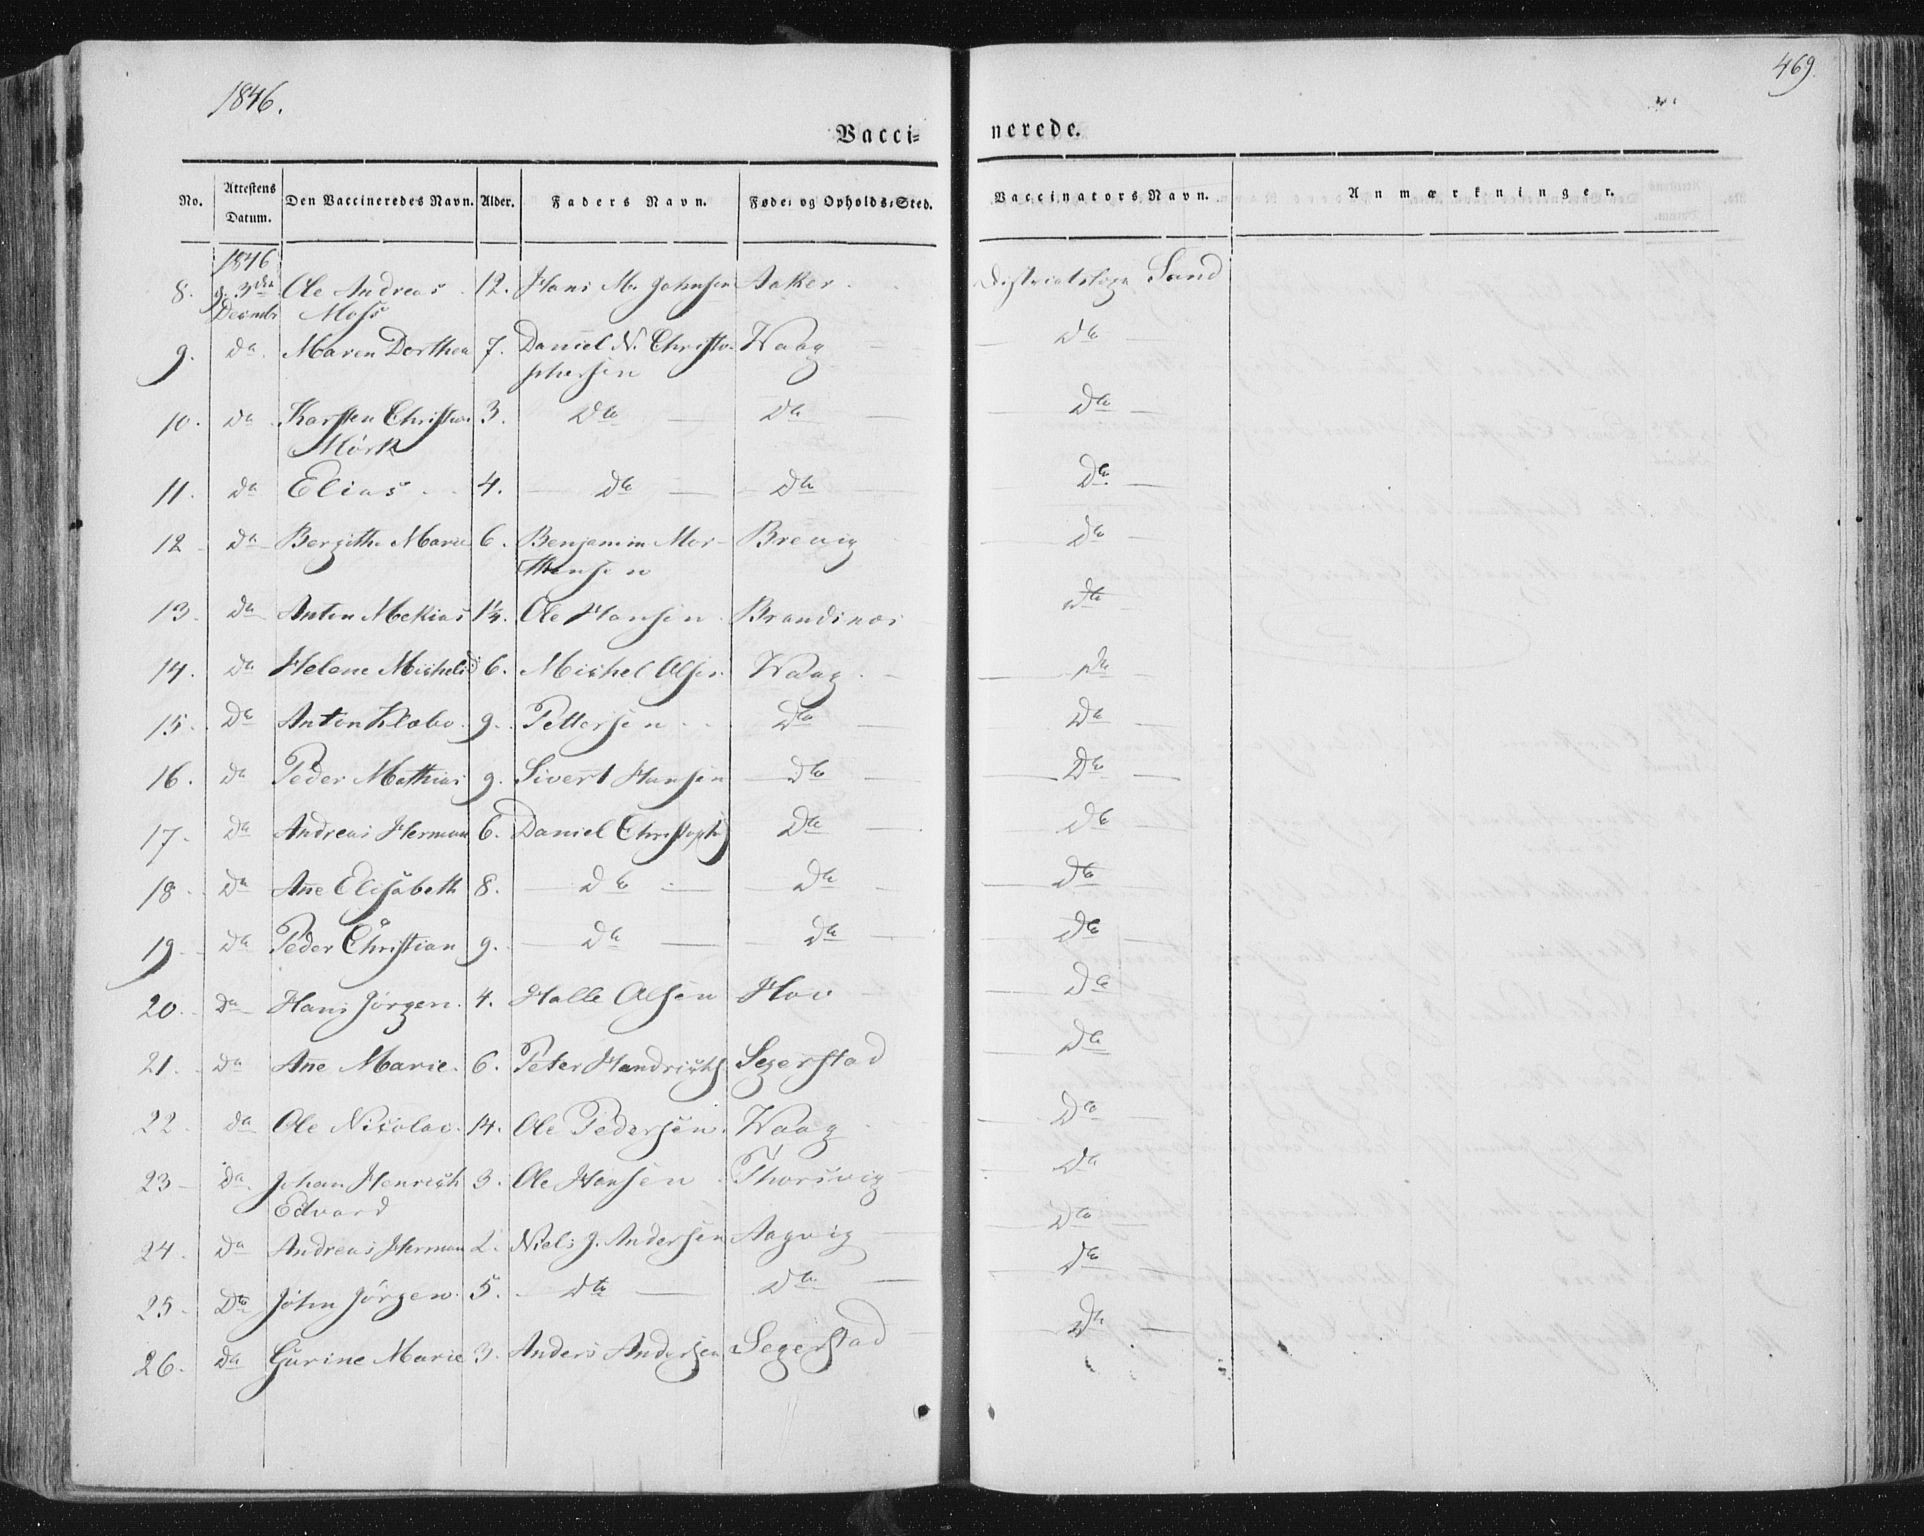 1846.
469.
Vacci=
nerede.
No. Attestens Datum. Den Vaccineredes Navn. Alder. Faders Navn. Føde- og Opholds-Sted. Vaccinators Navn. Anmærkninger.
1846
8. d. 3die Ole Andreas 12. Hans M. Johnsen Aaker Districtslæge Sand
Decembr Moss
9. do Maren Dorthea 7. Daniel N. Christo- Waag do
phersen
10. do Karsten Christian 3. Do Do Do
Mörk
11. do Elias 4. Do Do Do
12 do Bergithe Marie 6. Benjamin Mor- Brevig Do
thensen
13. do Anton Mekias 1¼. Ole Hansen Brandsnæs Do
14. do Helene Michels D 6. Michel Olsen Waag. Do
15. Do Anton Klæbo 9. Pettersen Do Do
16. do Peder Mathias 9. Sivert Hansen Do Do
17. Do Andreas Herman 6. Daniel Christoph Do Do
18. Do Ane Elisabeth 8. Do Do Do
19. do Peder Christian 9. Do Do Do
20. do Hans Jørgen. 4. Halle Olsen Hov Do
21. do Ane Marie. 6. Peter Hendrichs Segerstad Do
22. do Ole Nicolai. 14. Ole Pedersen. Waag Do
23 Da. Johan Henrich 3. Ole Hansen Thorsvig Do
Edvard
24. Do Andreas Herman 2. Niels J. Andersen Aagvig Do
25. Do John Jørgen. 5. Do Do Do
26. Do Gurine Marie 3. Anders Andersen Segerstad Do